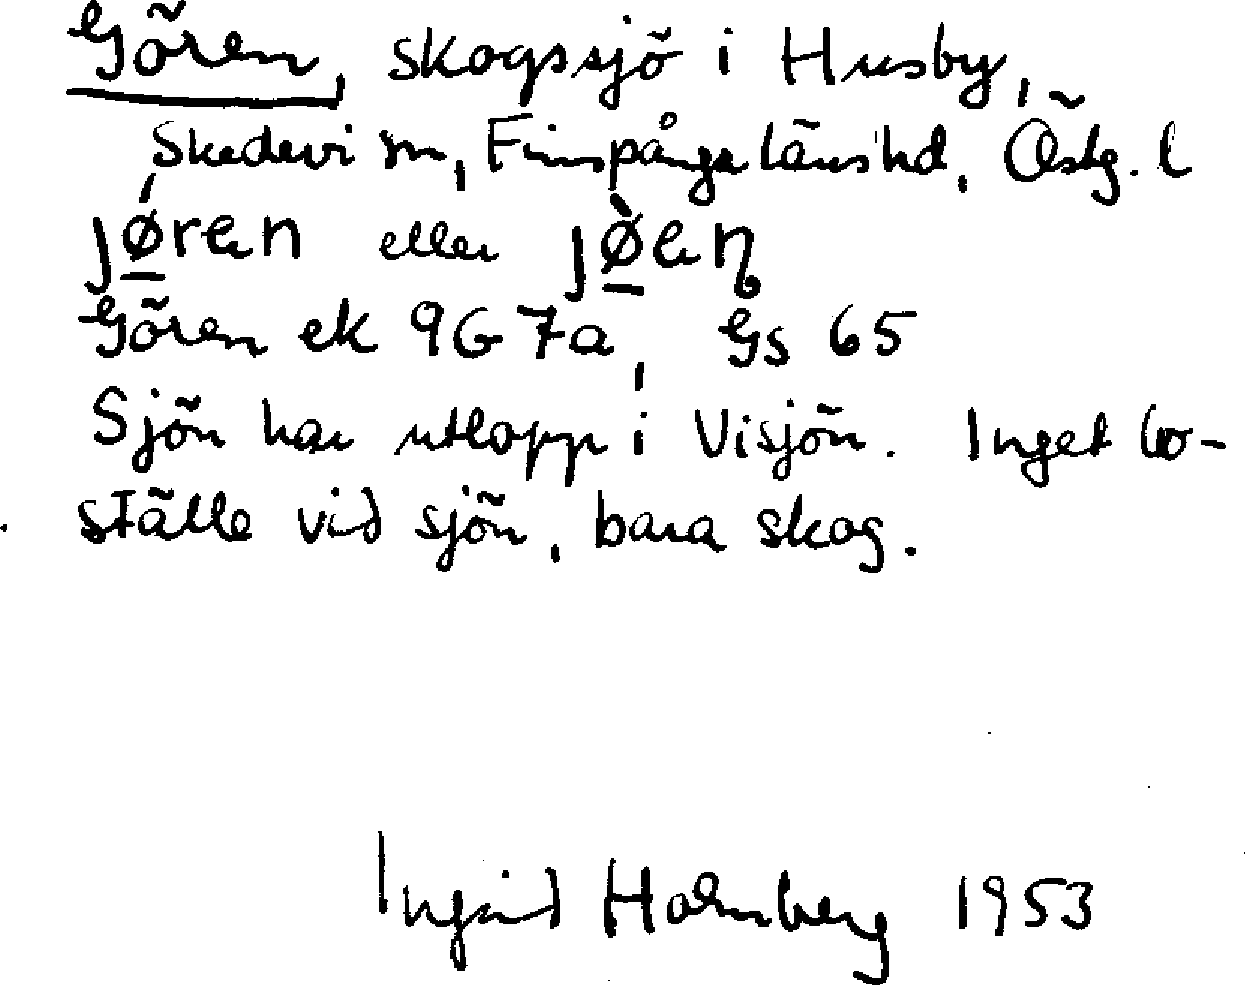 Gören, skogssjö i Husby,
Skedevi sn, Finspånga länshd, Östg. l
jǿ̲ren eller jø̲̀eɳ
Gören ek 9G 7a, Gs 65
Sjön har utlopp i Visjön. Inget bo-
ställe vid sjön, bara skog.
Ingrid Holmberg 1953